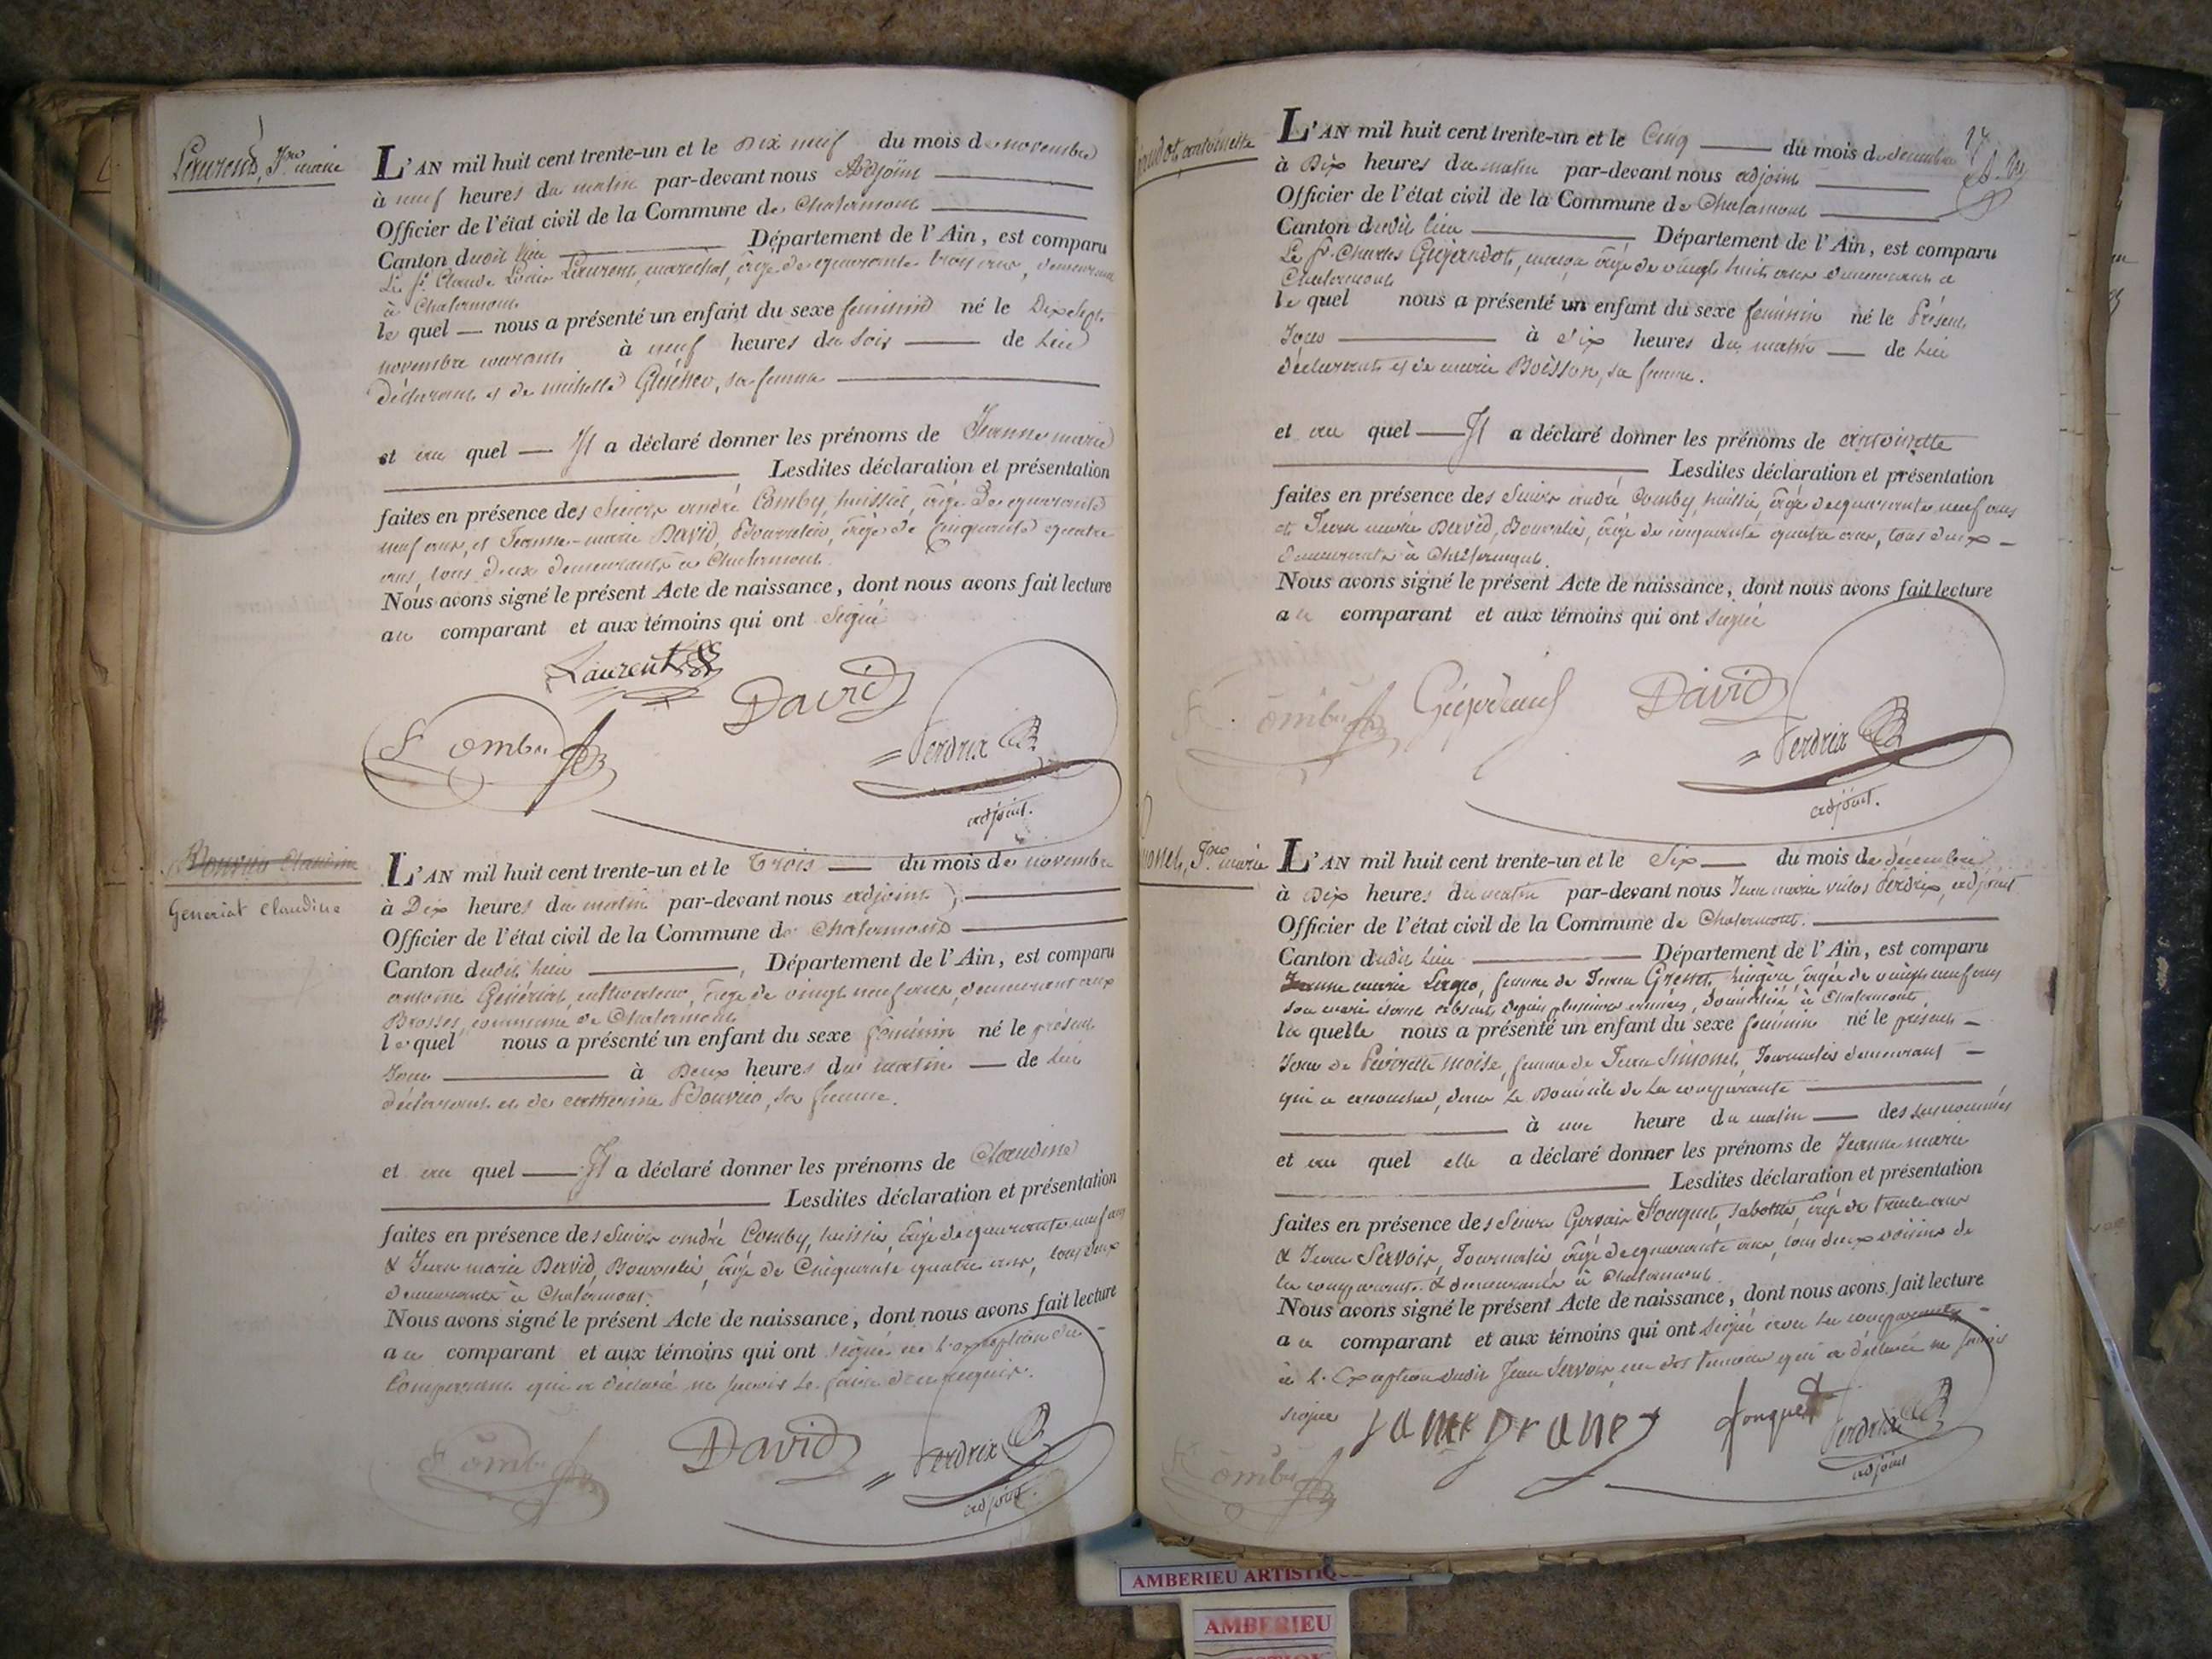 Laurent, Jne marie
L'AN mil huit cent trente-un et le Dix neuf du mois de novembre
à neuf heures du matin par-devant nous Adjoint
Officier de l'état civil de la Commune de Chalamont
Canton dudit lieu Département de l'Ain, est comparu
Le Sr Claude Louis Laurent, marechal, âgé de quarante trois ans, demeurant
à Chalamont
le quel nous a présenté un enfant du sexe feminin né le Dix sept
novembre courant à neuf heures du soir de lui
déclarant et de sa femme
et au quel Il a déclaré donner les prénoms de Jeanne marie
Lesdites déclaration et présentation
faites en présence des Sieurs andré Comby, huissier, âgé de quarante
neuf ans, et Jeanne-marie David, Bourrelier, âgé de Cinquante quatre
ans, tous deux demeurants à Chalamont.
Nous avons signé le présent Acte de naissance, dont nous avons fait lecture
au comparant et aux témoins qui ont Signé
Laurent
David
Comby
Perdrix
adjoint.
Bouvier Claudine
Generiat Claudine
L'AN mil huit cent trente-un et le Trois du mois de novembre
à Dix heures du matin par-devant nous adjoint
Officier de l'état civil de la Commune de Chalamont
Canton dudit lieu Département de l'Ain, est comparu
antoine Genériat, cultivateur, âgé de vingt neuf ans, demeurant aux
Brosses, commune de Chalamont
le quel nous a présenté un enfant du sexe féminin né le présent
Jour à Deux heures du matin de lui
déclarant et de catherine Bouvier, sa femme.
et au quel Il a déclaré donner les prénoms de Claudine
Lesdites déclaration et présentation
faites en présence des Sieurs andré Comby, huissier, âgé de quarante neuf ans
& Jean marie David, Bourrelier, âgé de Cinquante quatre ans, tous deux
demeurants à Chalamont.
Nous avons signé le présent Acte de naissance, dont nous avons fait lecture
au comparant et aux témoins qui ont signé à l'exception du
Comparant qui a déclaré ne savoir le faire de ce requis.
Comby
David
Perdrix
adjoint.
antoinette
L'AN mil huit cent trente-un et le Cinq du mois de décembre
à Dix heures du matin par-devant nous adjoint
Officier de l'état civil de la Commune de Chalamont
Canton dudit lieu Département de l'Ain, est comparu
Le Sr Charles, maçon âgé de vingt huit ans demeurant a
Chalamont
le quel nous a présenté un enfant du sexe féminin né le Présent
Jour à Six heures du matin de lui
déclarant et de marie Boisson, sa femme.
et au quel Il a déclaré donner les prénoms de antoinette
Lesdites déclaration et présentation
faites en présence des Sieurs andré Comby, huissier, âgé de quarante neuf ans
et Jean marie David, Bourrelier, âgé de cinquante quatre ans, tous deux
demeurants à Chalamont.
Nous avons signé le présent Acte de naissance, dont nous avons fait lecture
au comparant et aux témoins qui ont signé
Comby
David
Perdrix
adjoint.
Jne marie
L'AN mil huit cent trente-un et le Six du mois de décembre
à Dix heures du matin par-devant nous Jean marie Perdrix, adjoint
Officier de l'état civil de la Commune de Chalamont.
Canton dudit lieu Département de l'Ain, est comparu
Jeanne marie, femme de Jean, âgée de vingt neuf ans
son mari étant absent depuis plusieurs années, domiciliée à Chalamont,
la quelle nous a présenté un enfant du sexe féminin né le présent
Jour de Pierrette moise, femme de Jean Simonet, Journalier demeurant
qui a accouché, dans le Domicile de La comparante
à une heure du matin des susnommés
et au quel elle a déclaré donner les prénoms de Jeanne marie
Lesdites déclaration et présentation
faites en présence des Sieurs Gervais Fouquet, sabotier, âgé de trente ans
& Jean Servais, Journalier âgé de quarante ans, tous deux voisins de
la comparante & demeurants à Chalamont.
Nous avons signé le présent Acte de naissance, dont nous avons fait lecture
au comparant et aux témoins qui ont signé avec la comparante
à l'Exception dudit Jean Servais, un des témoins qui a déclaré ne savoir
signer
fouquet
Perdrix
adjoint
Comby
AMBERIEU ARTISTIQ
AMBERIEU